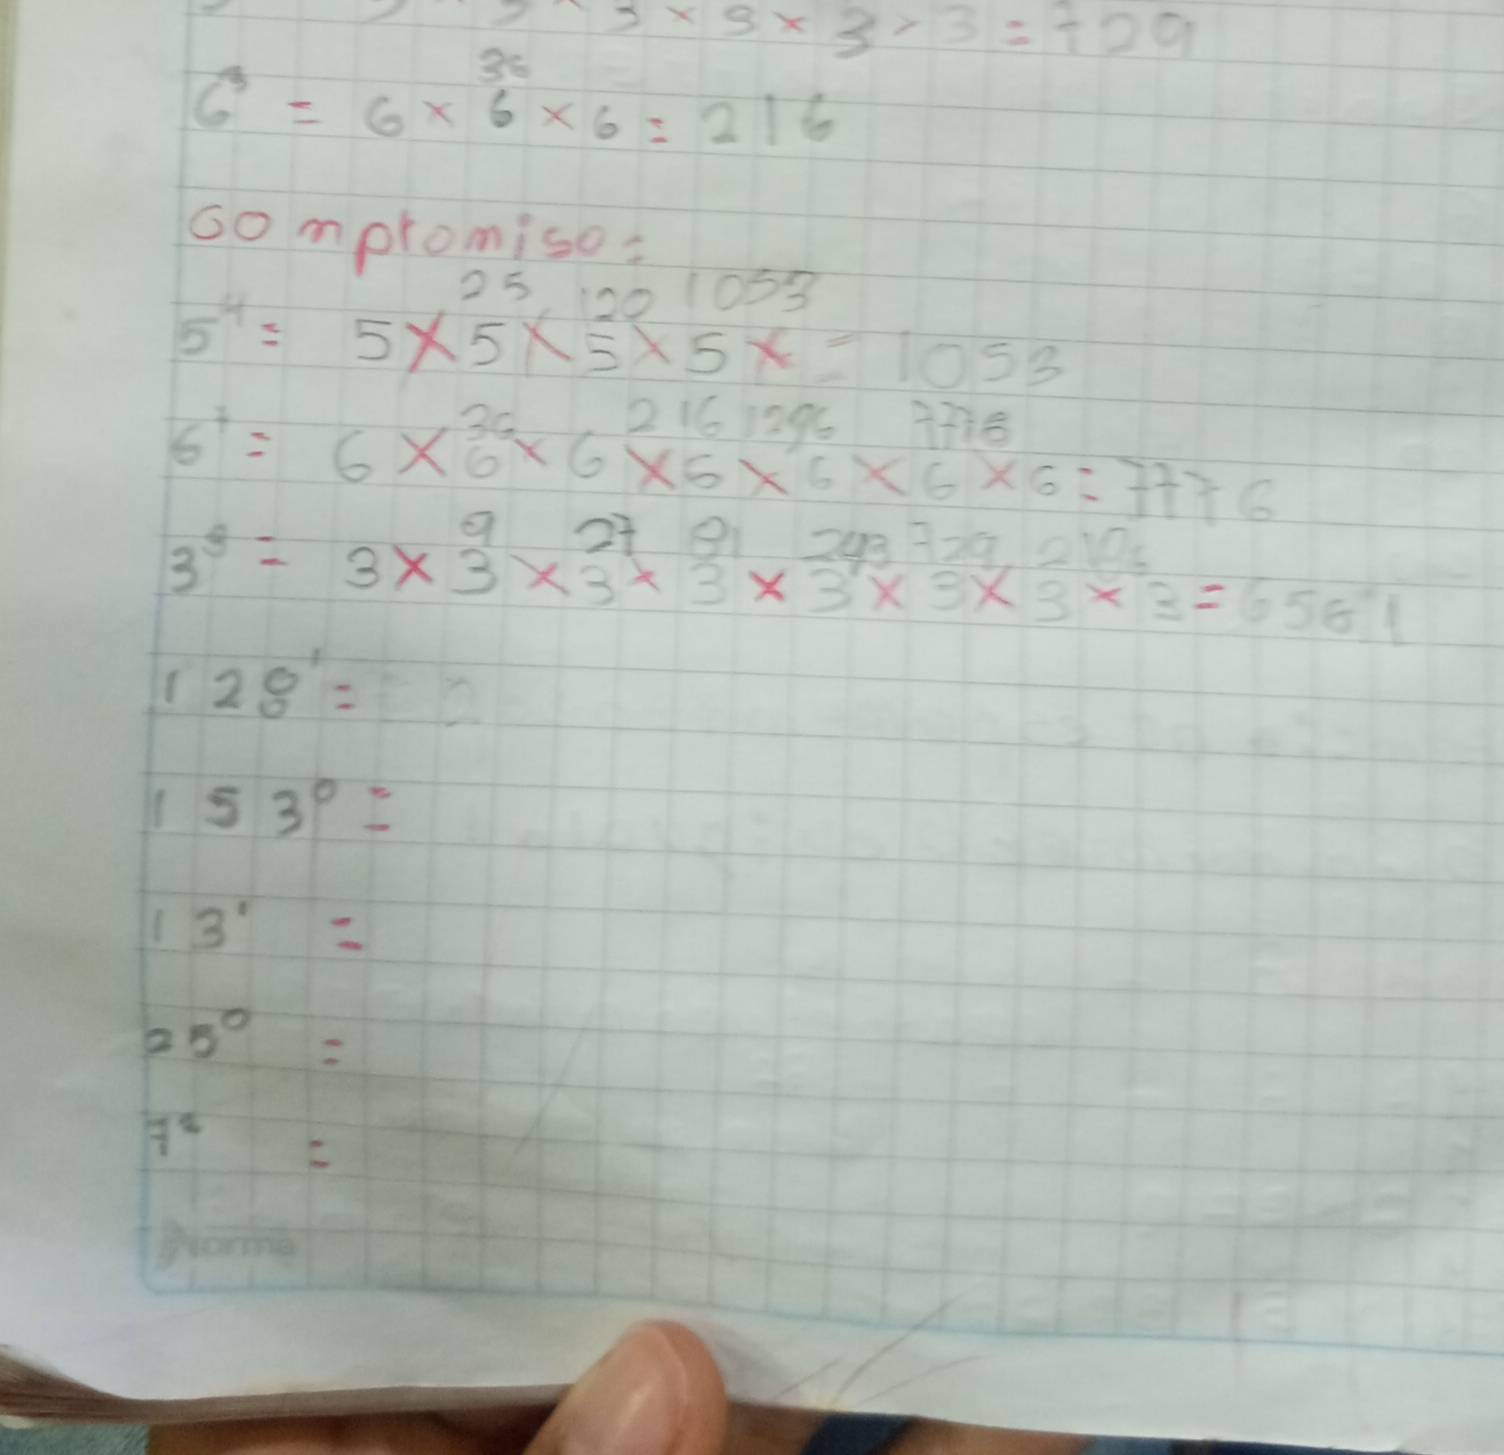 3 × 3 × 3 × 3 = 729
36
6³ = 6 × 6 × 6 = 216
Compromiso:
25 120 1053
5⁴ = 5 × 5 × 5 × 5 × = 1053
36 216 1296 7776
6⁷ = 6 × 6 × 6 × 6 × 6 × 6 × 6 = 7776
9 27 81 243 729
3⁸ = 3 × 3 × 3 × 3 × 3 × 3 × 3 × 3 = 6561
128¹ =
153⁰ =
13¹ =
25⁰ =
=
Norma